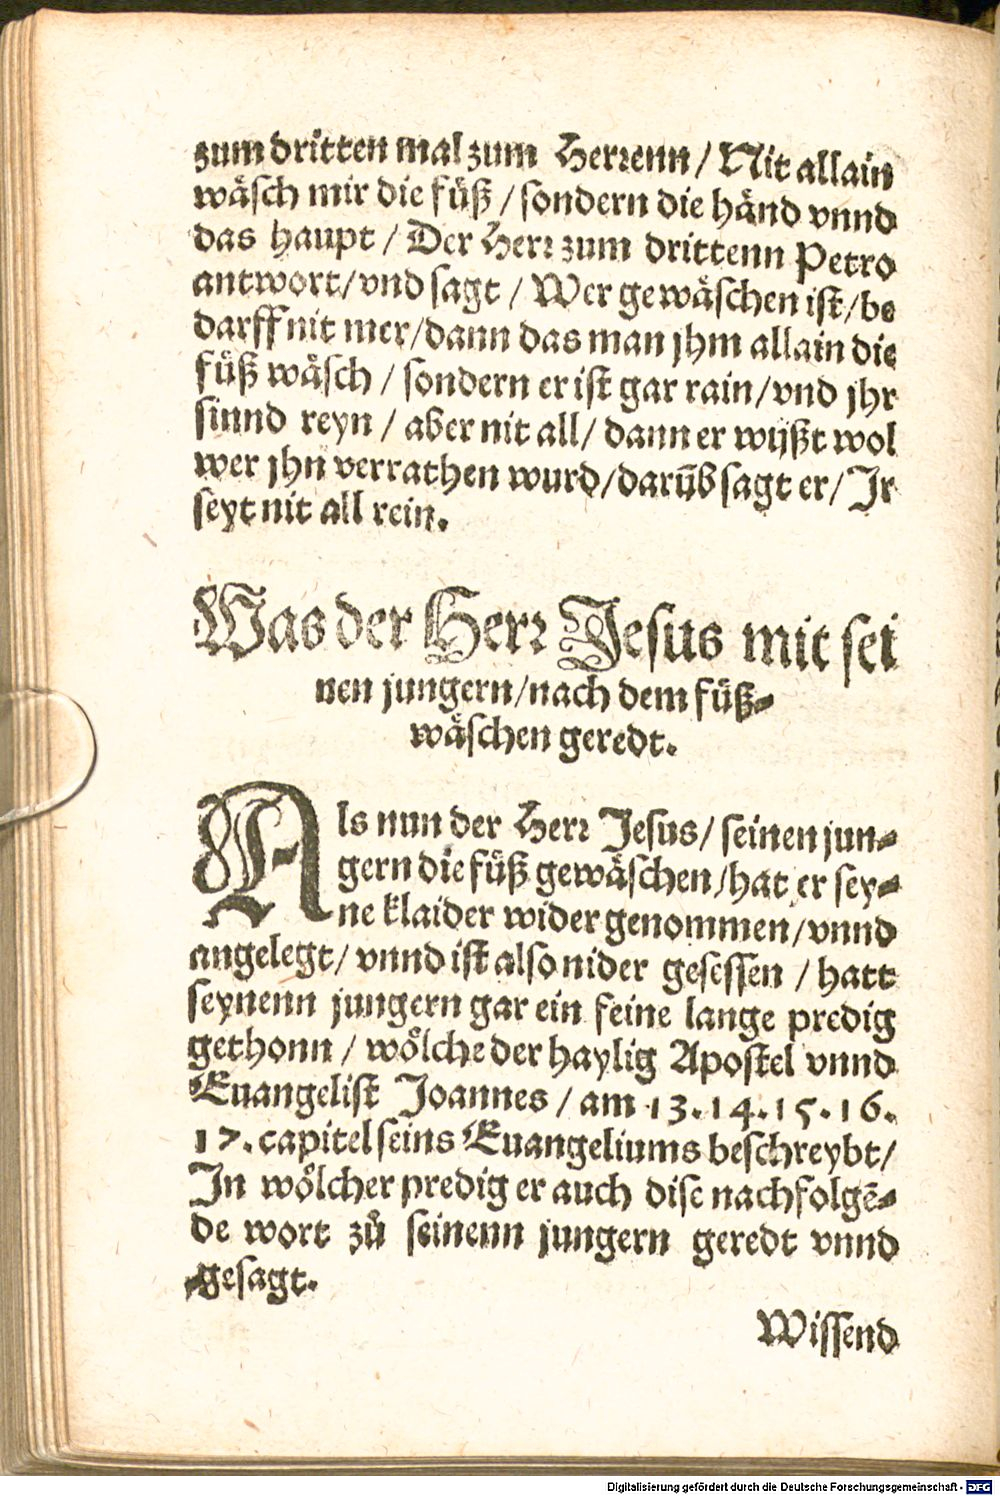 zum dritten mal zum Herꝛenn / Nit allain
wäſch mir die fuͤß / ſondern die haͤnd vnnd
das haupt / Der Herꝛ zum drittenn Petro
antwort / vnd ſagt / Wer gewaͤſchen iſt / be
darff nit mer / dann das man jhm allain die
fuͤß waͤſch / ſondern er iſt gar rain / vnd jhr
ſinnd reyn / aber nit all / dann er wijßt wol
wer jhn verrathen wurd / darūb ſagt er / Jr
ſeyt nit all rein.
Was der Herꝛ Jeſus mit ſei
nen jungern / nach dem fuͤß⸗
waͤſchen geredt.
Als nun der Herꝛ Jeſus / ſeinen jun⸗
gern die fuͤß gewaͤſchen / hat er ſey⸗
ne klaider wider genommen / vnnd
angelegt / vnnd iſt alſo nider geſeſſen / hatt
ſeynenn jungern gar ein feine lange predig
gethonn / woͤlche der haylig Apoſtel vnnd
Euangeliſt Joannes / am 13. 14. 15. 16.
17. capitel ſeins Euangeliums beſchreybt /
In woͤlcher predig er auch diſe nachfolgē⸗
de wort zuͦ ſeinenn jungern geredt vnnd
geſagt.
Wiſſend
Digitalisierung gefördert durch die Deutsche Forschungsgemeinschaft - DFG